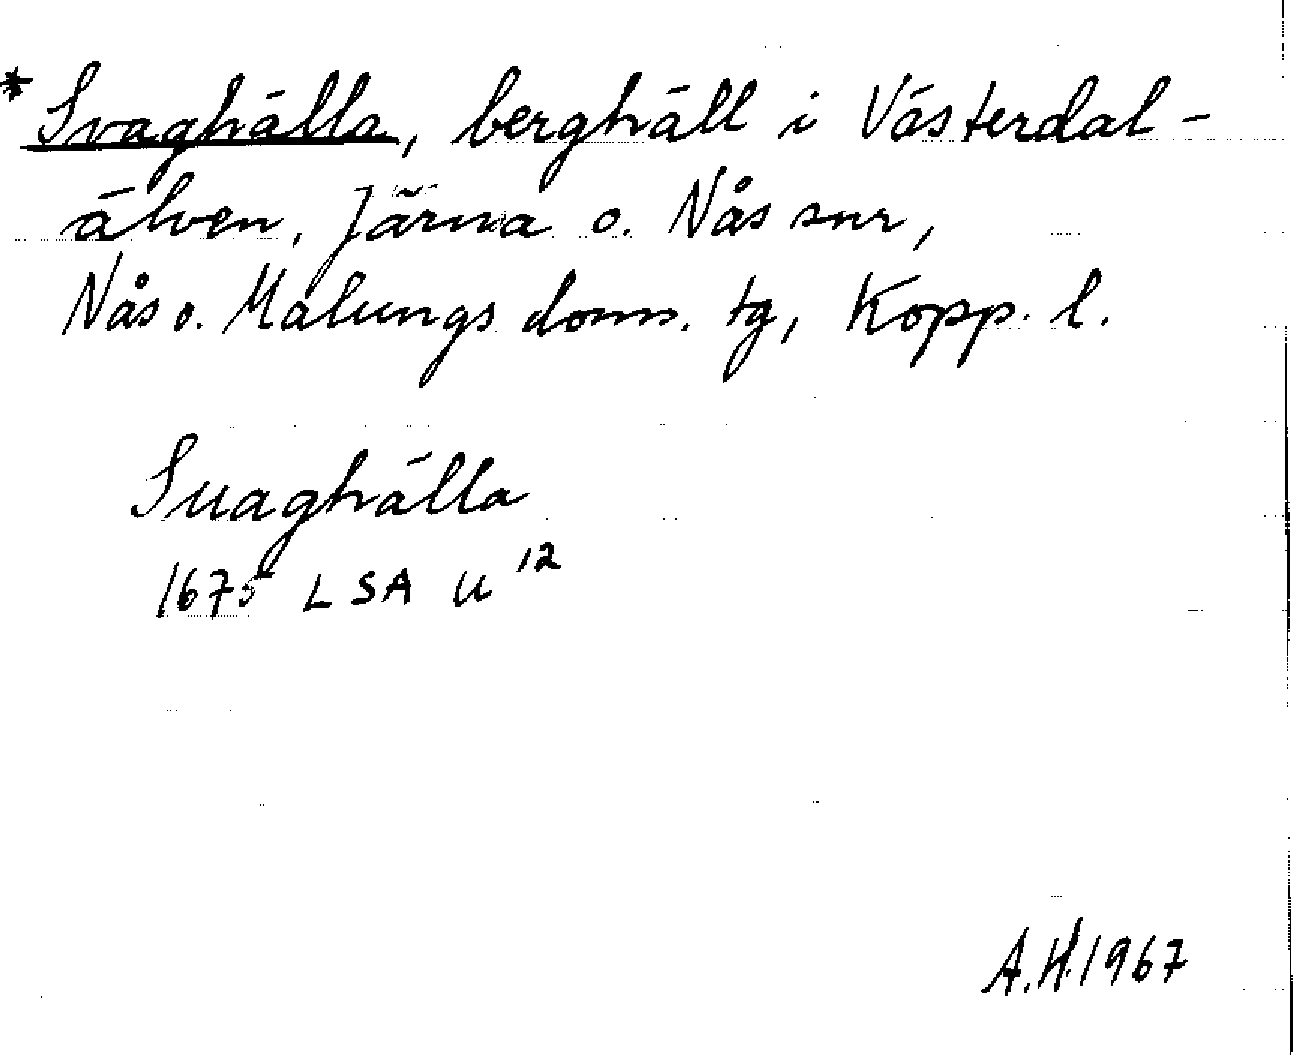 *Svaghälla, berghäll i Västerdal-
älven, Järna o. Nås snr,
Nås o. Malungs doms. tg, Kopp. l.
Suaghälla
1675 LSA U 12
A.H. 1967